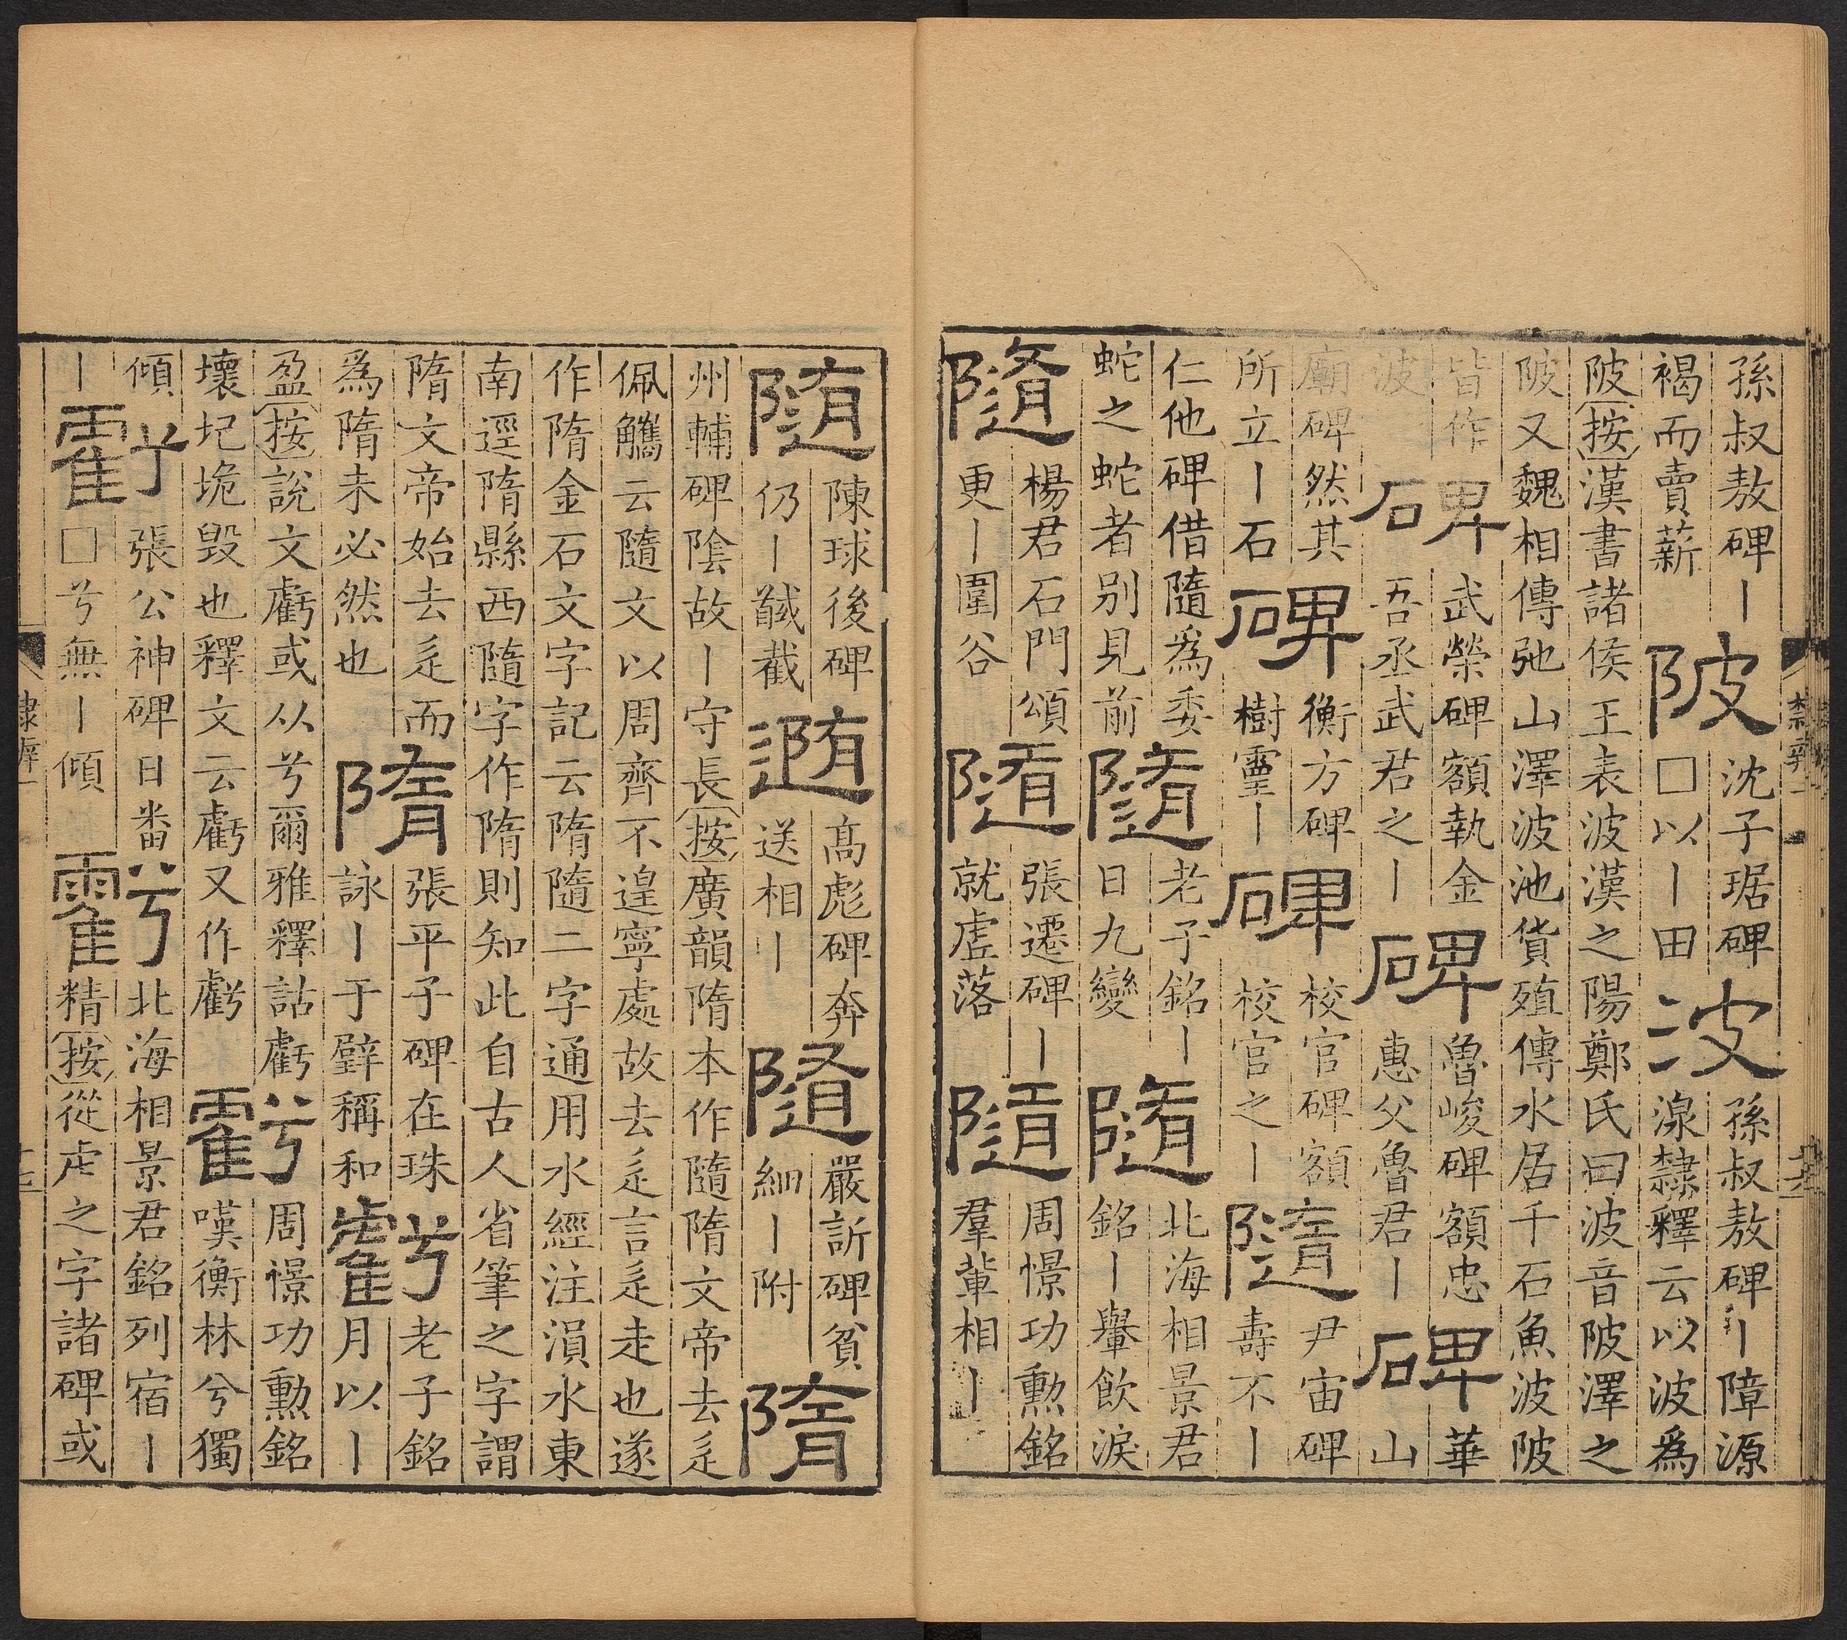 孫叔敖碑丨
褐而賣薪
陂
沈子琚碑
□以丨田
波
孫叔敖碑丨障源
湶隸釋云以波爲
陂按漢書諸侯王表波漢之陽鄭氏曰波音陂澤之
陂又魏相傳弛山澤波池貨殖傳水居千石魚波陂
皆作
波
碑
武榮碑額執金
吾丞武君之丨
碑
魯峻碑額忠
惠父魯君丨
碑
華
山
廟碑然其
所立丨石
碑
衡方碑
樹靈丨
碑
校官碑額
校官之丨
隨
尹宙碑
壽不丨
仁他碑借隨爲委
蛇之蛇者别見前
隨
老子銘丨
日九變
隨
北海相景君
銘丨轝飲淚
隨
楊君石門頌
更丨圍谷
隨
張遷碑丨
就虛落
隨
周憬功勳銘
羣輩相丨
隨
陳球後碑
仍丨馘截
隨
高彪碑奔
送相丨
隨
嚴訢碑貧
細丨附
隋
州輔碑陰故丨守長按廣韻隋本作隨隋文帝去辵
佩觿云隨文以周齊不遑寧處故去辵言辵走也遂
作隋金石文字記云隋隨二字通用水經注溳水東
南逕隋縣西隨字作隋則知此自古人省筆之字謂
隋文帝始去辵而
爲隋未必然也
隋
張平子碑在珠
詠丨于璧稱和
虧
老子銘
月以丨
盈按說文虧或从兮爾雅釋詁虧
壞圮垝毀也釋文云虧又作𧇾
虧
周憬功勳銘
嘆衡林兮獨
傾
丨
虧
張公神碑日番
□兮無丨傾
虧
北海相景君銘列宿丨
精按從虍之字諸碑或